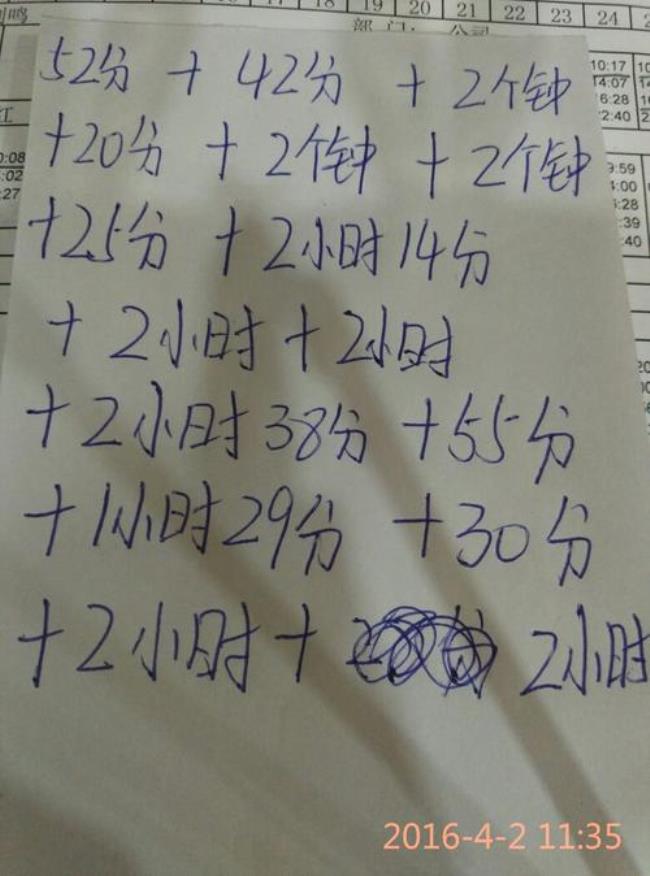 刘鸣
17 18 19 20 21 22 23 24
部 门: 公司
52分 + 42分 + 2个钟
+20分 + 2个钟 + 2个钟
+25分 + 2小时14分
+ 2小时 + 2小时
+ 2小时38分 +55分
+ 1小时29分 +30分
+ 2小时 + 2小时
10:17
14:07
16:28
22:40
红
0:08
:02
:27
9:59
:00
:28
:39
:40
2016-4-2 11:35